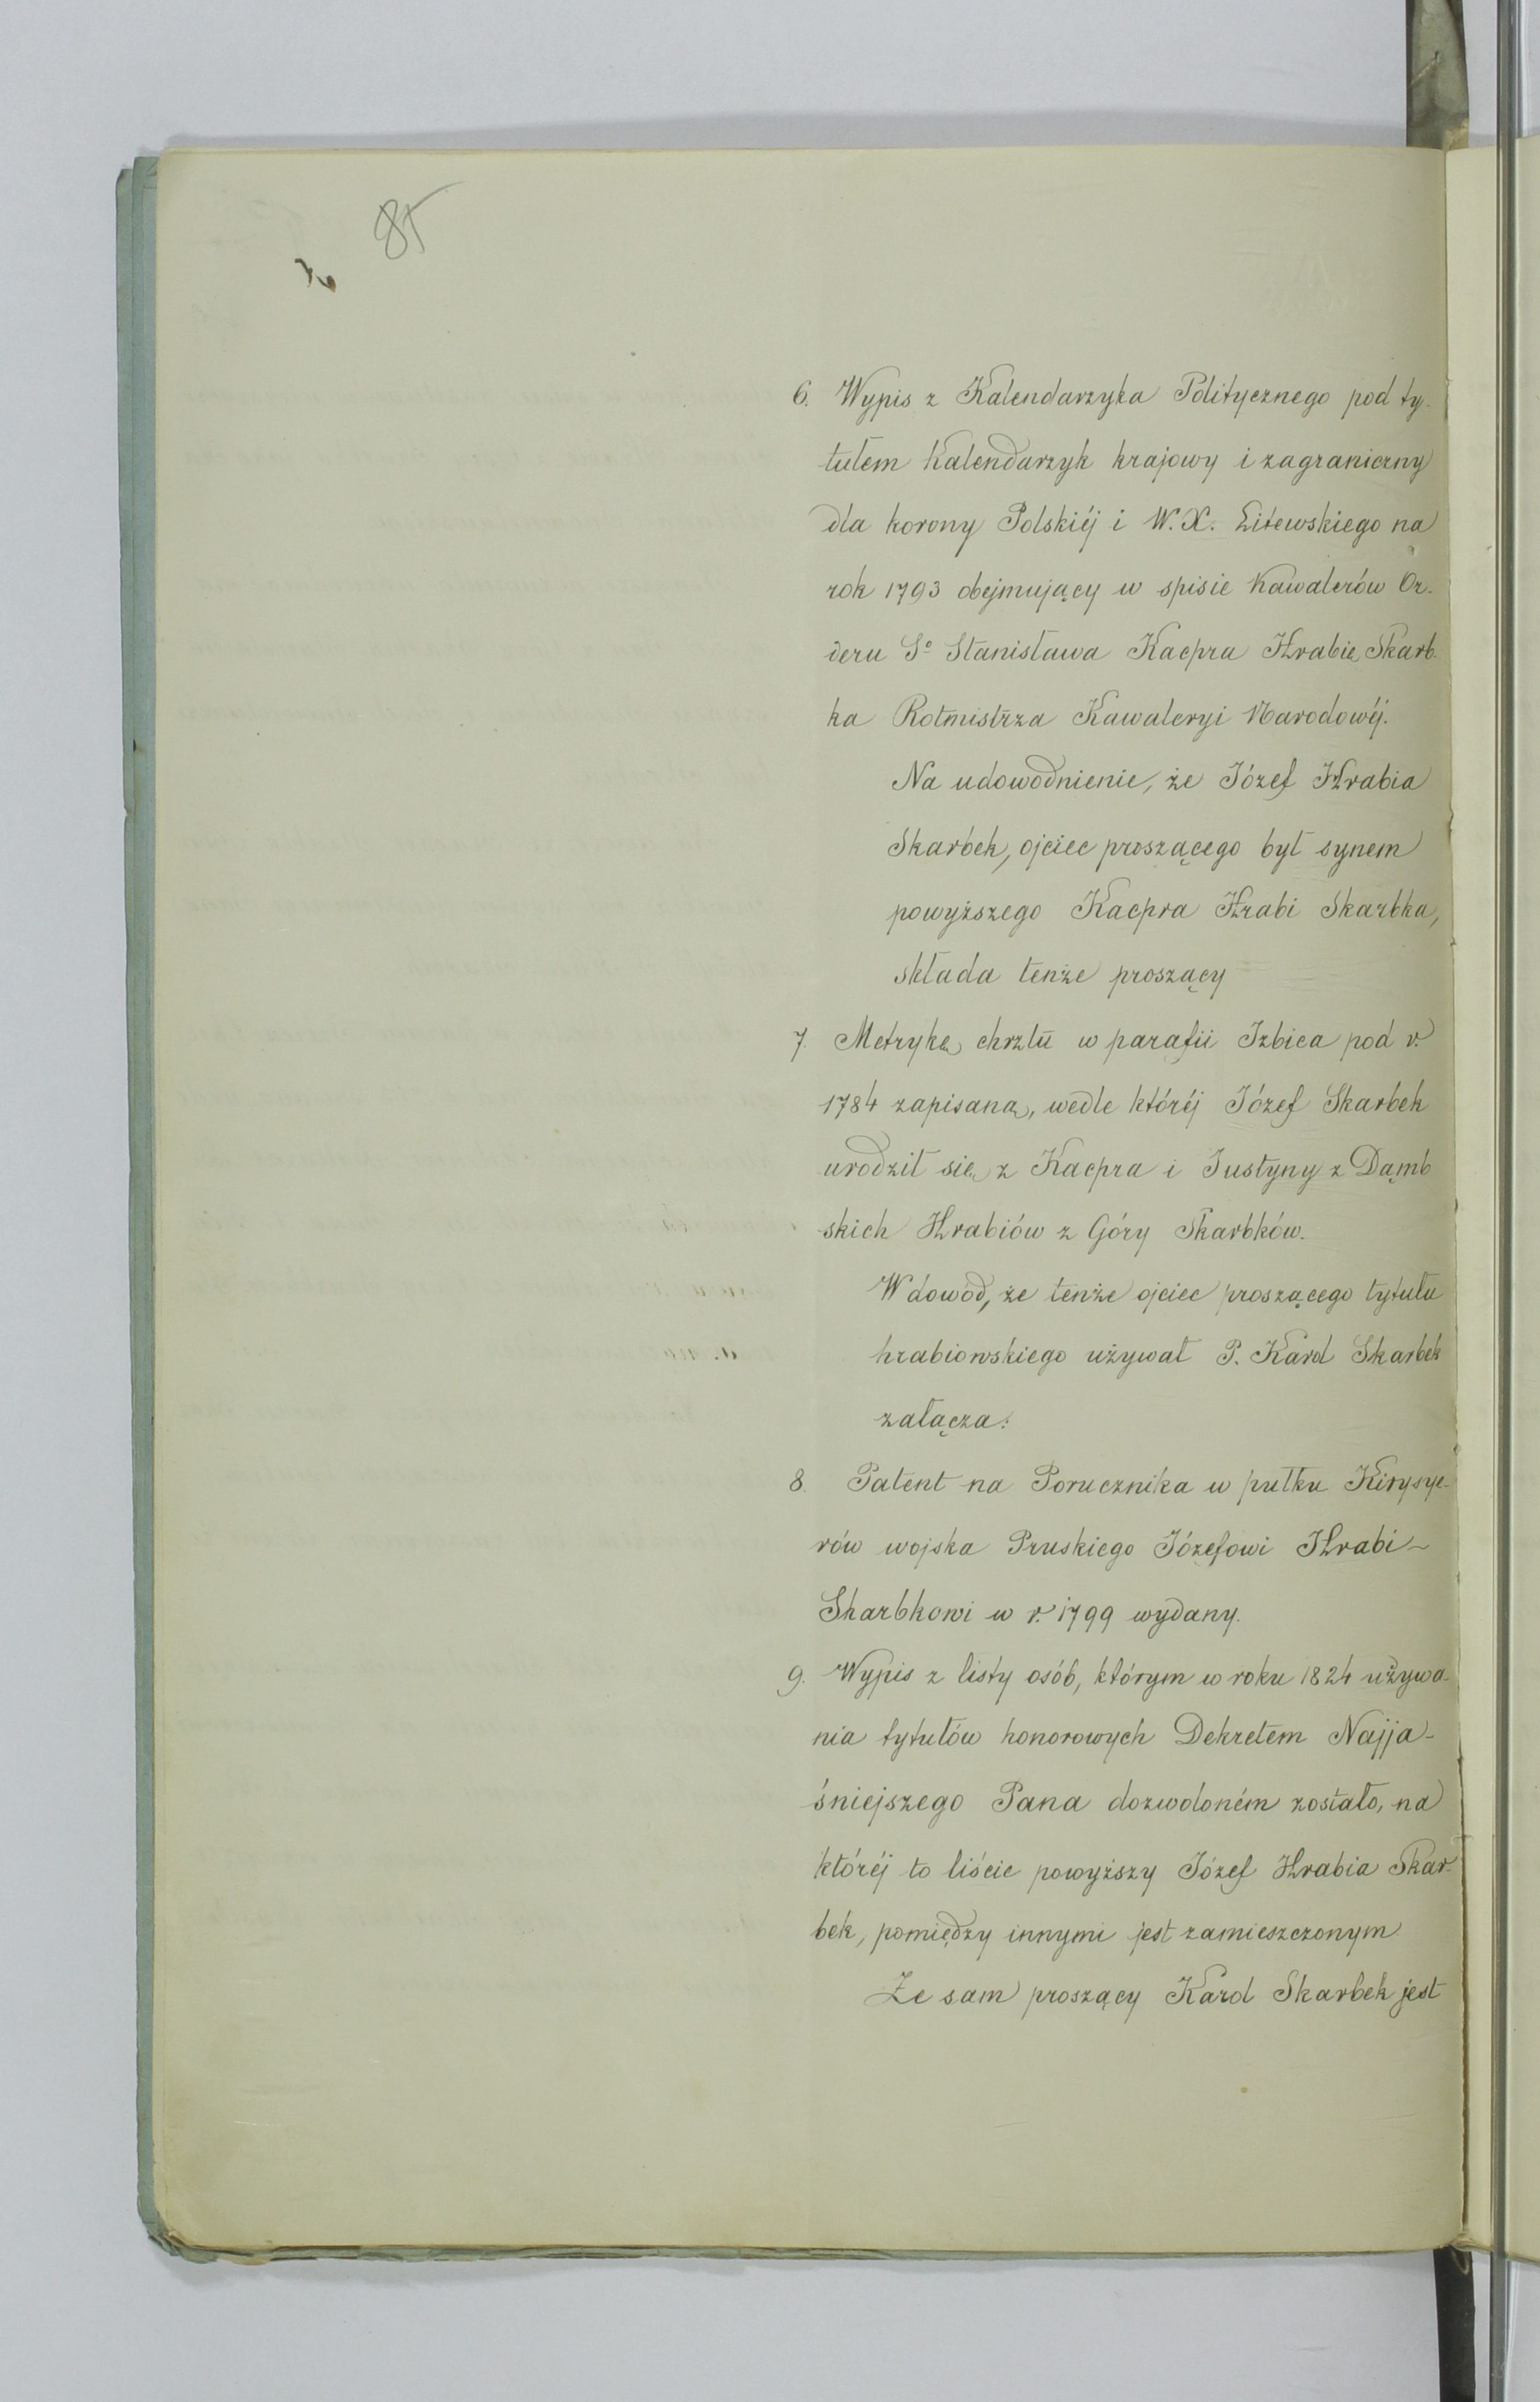 85
6. Wypis z Kalendarzyka Politycznego pod ty-
tułem Kalendarzyk krajowy i zagraniczny
dla korony Polskiéj i W. X. Litewskiego na
rok 1793 obejmujący w spisie Kawalerów Or-
deru So Stanisława Kacpra Hrabię Skarb-
ka Rotmistrza Kawaleryi Narodowéj.
Na udowodnienie, że Józef Hrabia
Skarbek, ojciec proszącego był synem
powyższego Kacpra Hrabi Skarbka,
składa tenże proszący
7. Metrykę chrztu w parafii Izbica pod r.
1784 zapisaną, wedle któréj Józef Skarbek
urodził się z Kacpra i Justyny z Dąmb
skich Hrabiów z Góry Skarbków.
W dowód, że tenże ojciec proszącego tytułu
hrabiowskiego używał P. Karol Skarbek
załącza:
8. Patent na Porucznika w pułku Kirysye-
rów wojska Pruskiego Józefowi Hrabi-
Skarbkowi w r. 1799 wydany.
9. Wypis z listy osób, którym w roku 1824 używa-
nia tytułów honorowych Dekretem Najja-
śniejszego Pana dozwoloném zostało, na
któréj to liście powyższy Józef Hrabia Skar-
bek, pomiędzy innymi jest zamieszczonym
Że sam proszący Karol Skarbek jest